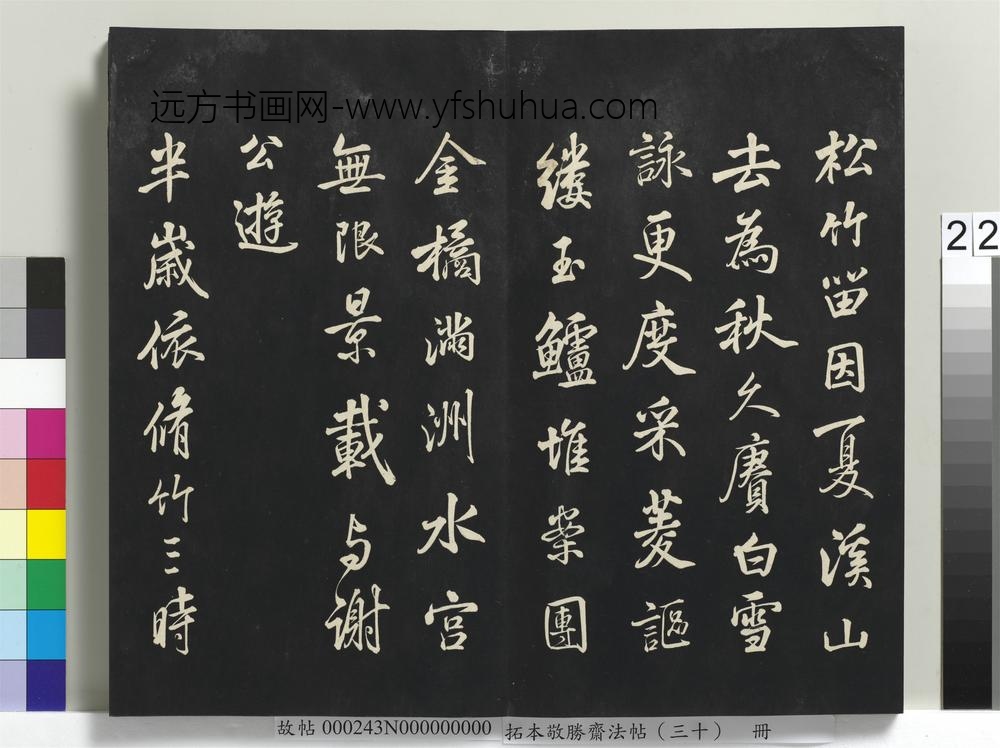 远方书画网-www.yfshuhua.com
松竹留因夏溪山
去為秋久賡白雪
詠更度采菱謳
縷玉鱸堆案團
金橘滿洲水宮
無限景載与謝
公遊
半歲依脩竹三時
22
2
故帖 000243N000000000 拓本敬勝齋法帖(三十) 冊